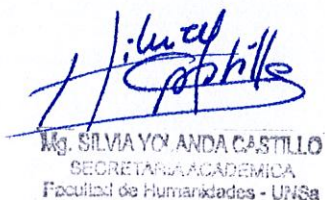 Silvia Castillo
Mg. SILVIA YOLANDA CASTILLO
SECRETARIA ACADEMICA
Facultad de Humanidades - UNSa